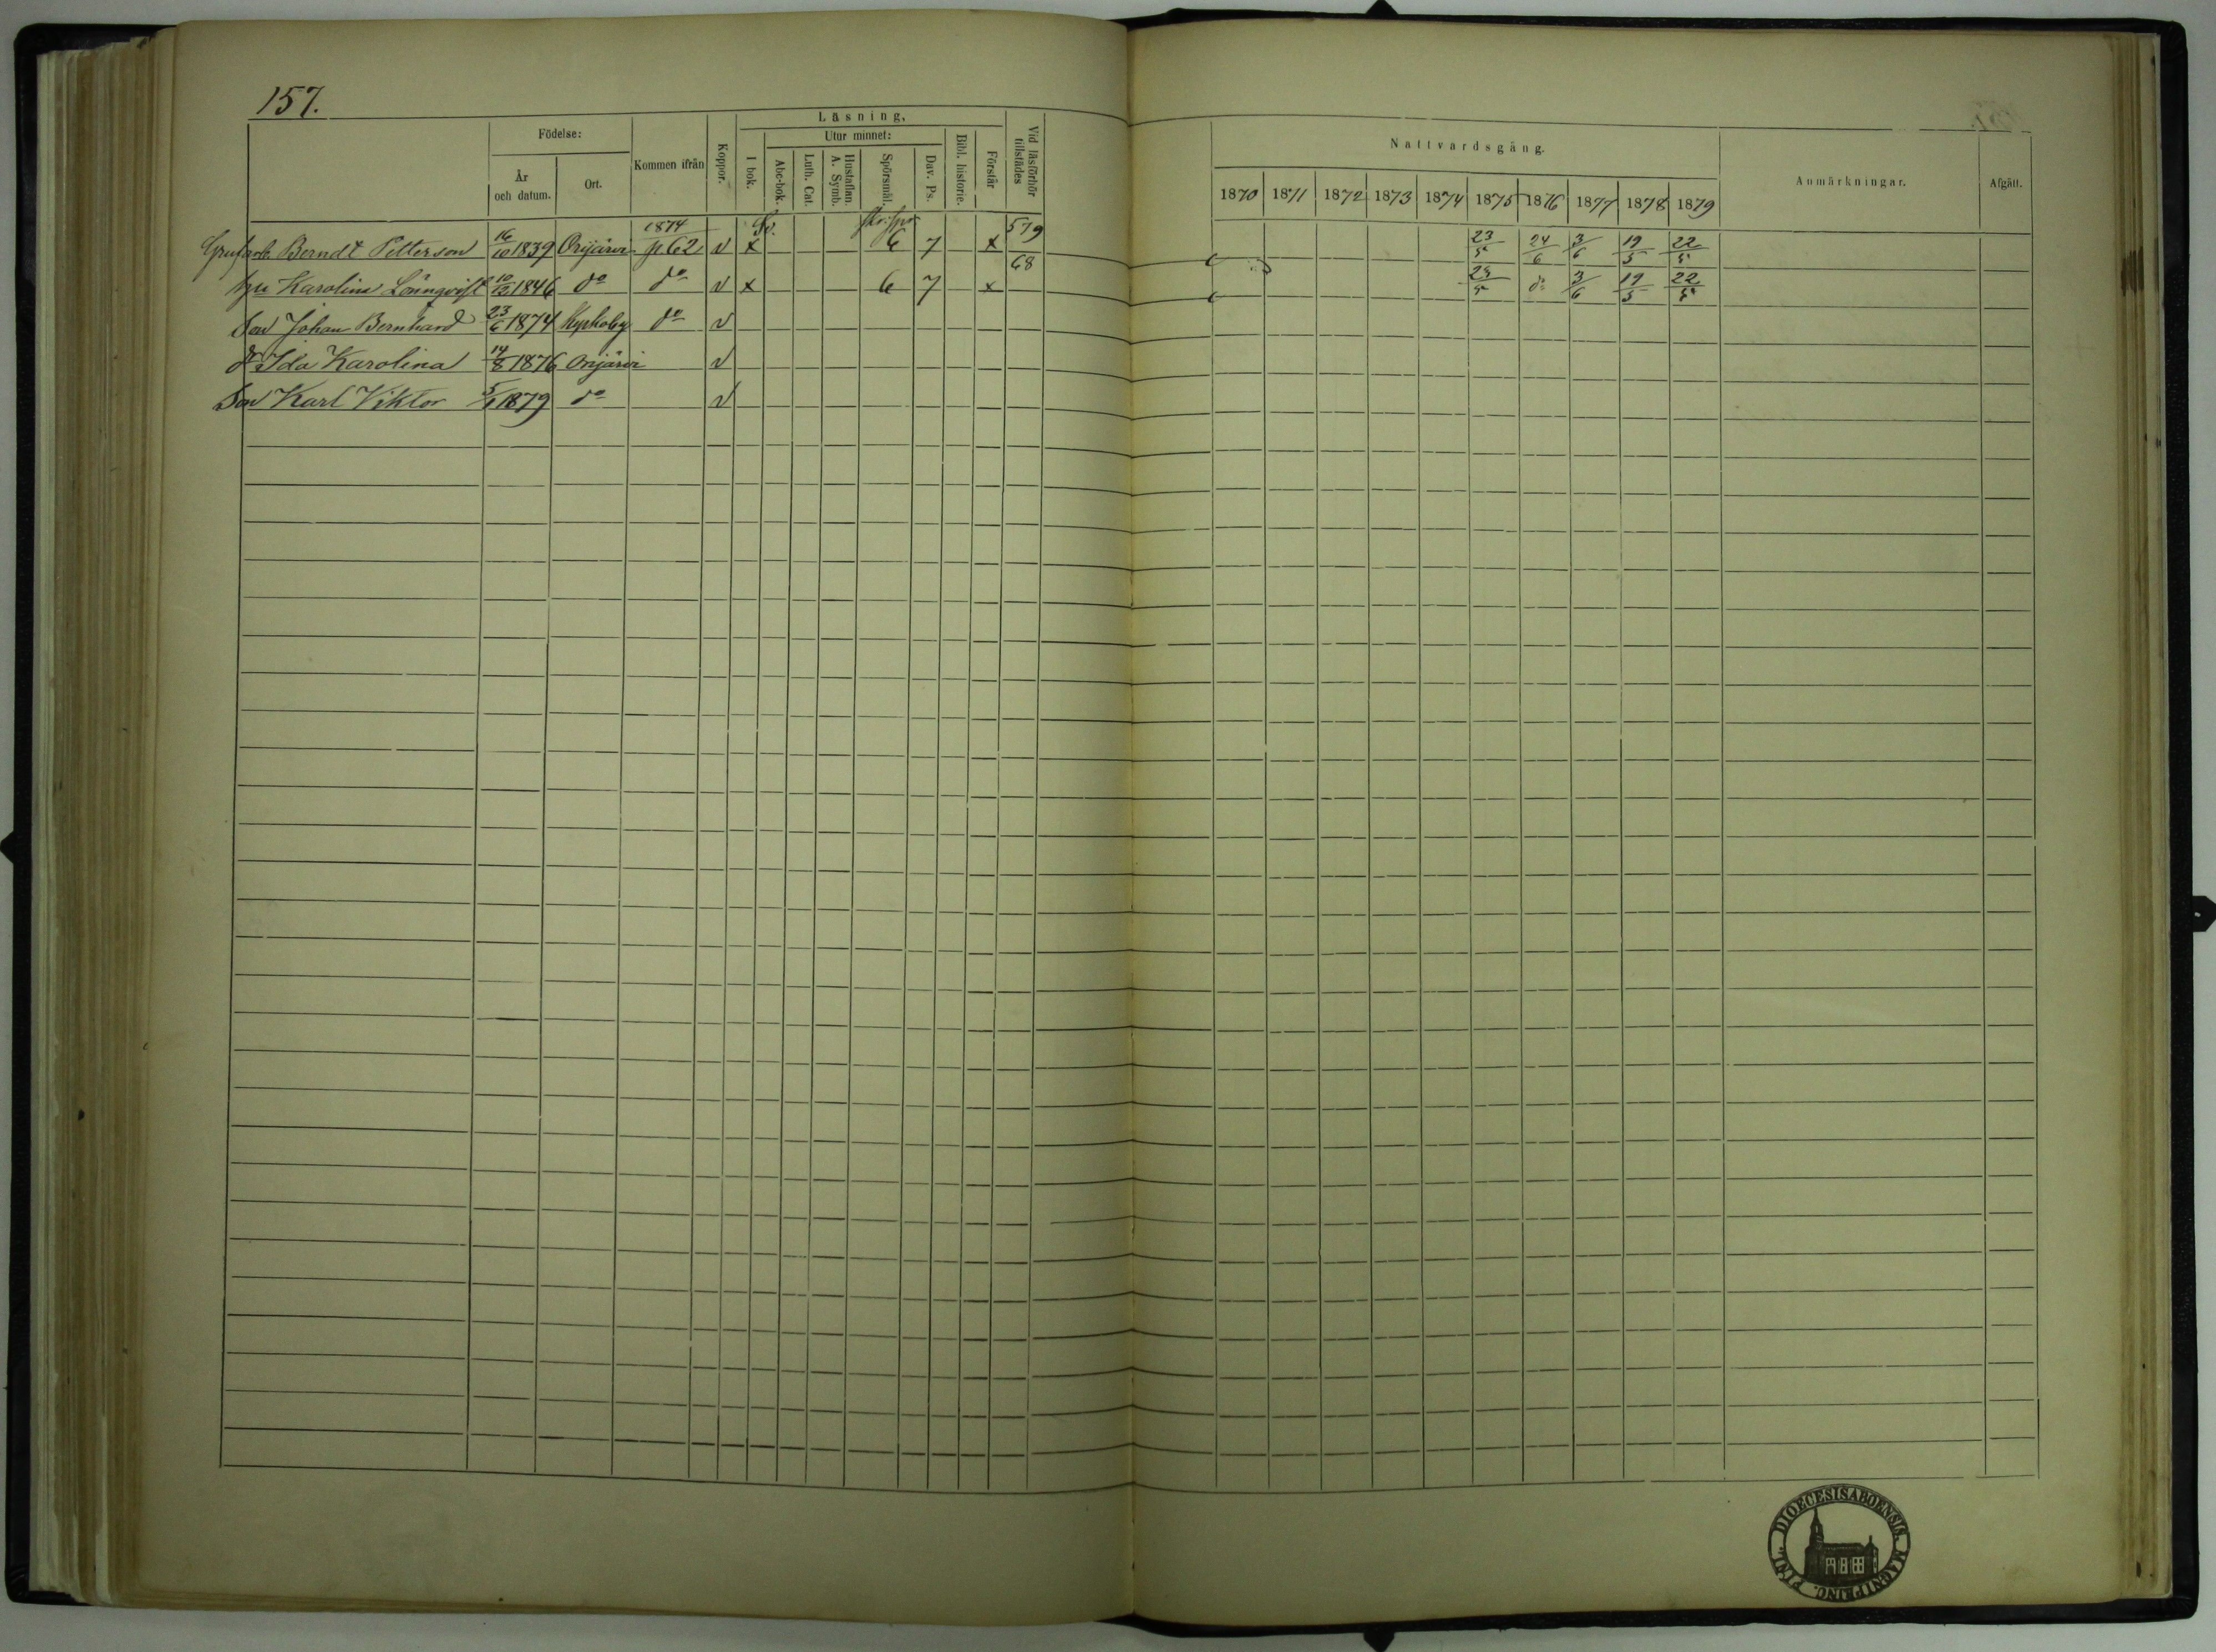 157.
Födelse:
År och datum.
Ort.
Kommen ifrån
Koppor.
Läsning,
I bok.
Utur minnet:
Abc-bok.
Luth. Cat.
Hustaflan. A. Symb.
Spörsmål.
Dav. Ps.
Bibl. historie.
Förstår
Vid läsförhör tillstädes
Nattvardsgång.
1870 1871 1872 1873 1874 1875 1876 1877 1878 1879
Anmärkningar.
Afgått.
1874 Sv. 579
Grufarb. Berndt Petterson 16/10 1839 Orijärvi p 62 v x 6 7 x 23/5 24/6 3/6 19/5 22/5
68
hu Karolina Lönnqvist 10/12 1846 do do v x 6 7 x 23/5 do 3/6 19/5 22/5
Son Johan Bernhard 23/6 1874 do v
dr Ida Karolina 14/8 1876 Orijärvi v
Son Karl Viktor 5/1 1879 do v
DIOECESIS ABOENSIS. MAGNI PRINC. FINL.